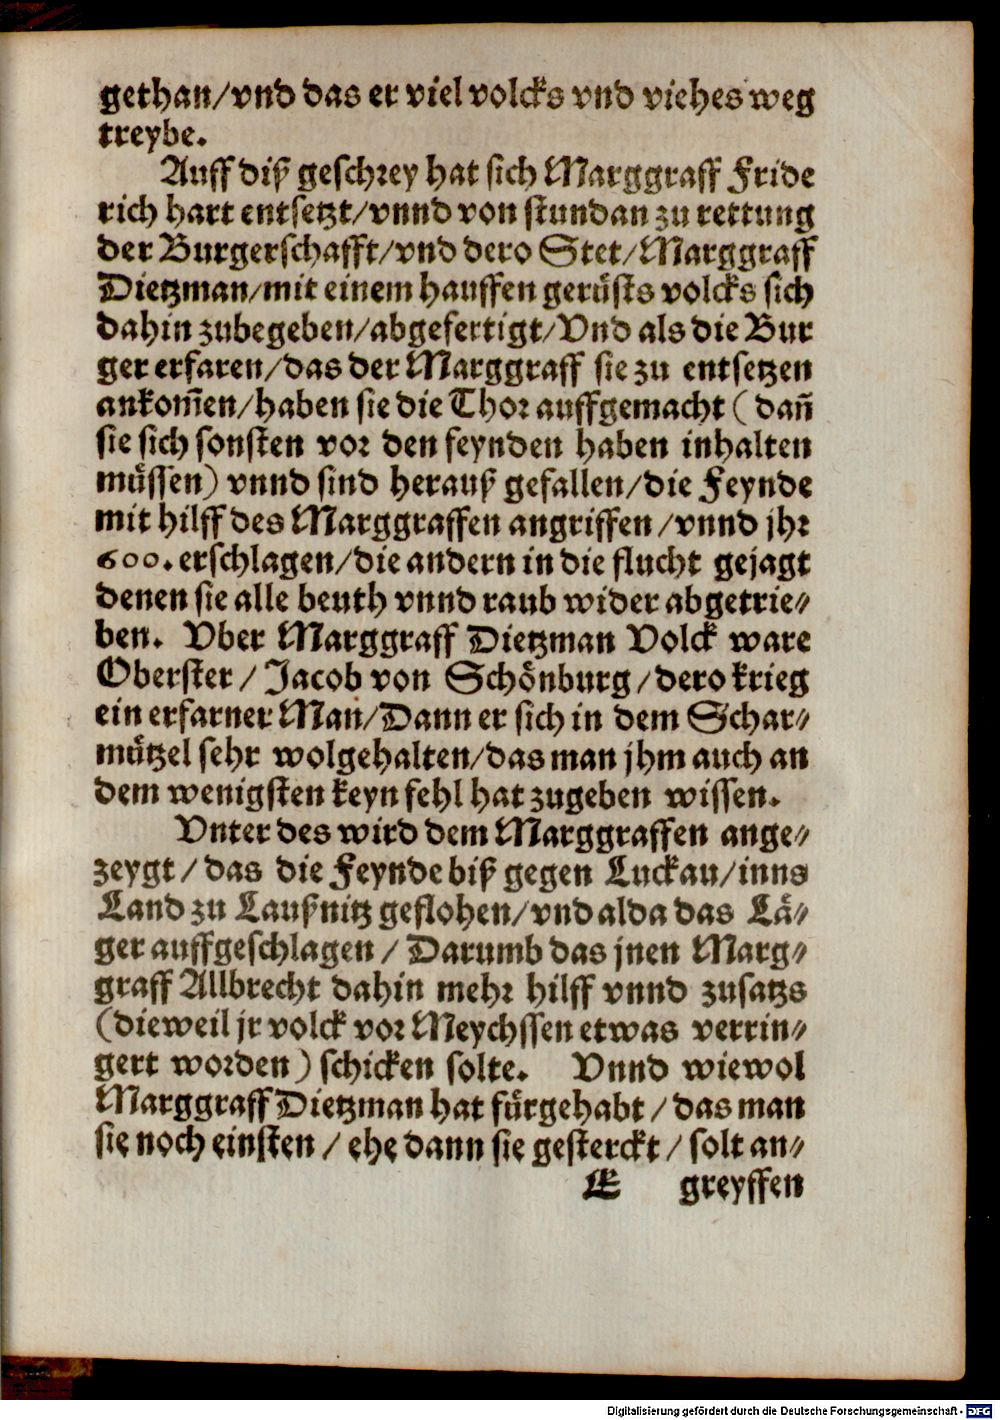 gethan/vnd das er viel volcks vnd viehes weg
treybe.
Auff diß geschrey hat sich Marggraff Fride
rich hart entsetzt/vnnd von stundan zu rettung
der Burgerschafft/vnd dero Stet/Marggraff
Dietzman/mit einem hauffen gerüsts volcks sich
dahin zubegeben/abgefertigt/Vnd als die Bur
ger erfaren/das der Marggraff sie zu entsetzen
ankom̃en/haben sie die Thor auffgemacht (dañ
sie sich sonsten vor den feynden haben inhalten
müssen) vnnd sind herauß gefallen/die Feynde
mit hilff des Marggraffen angriffen/vnnd jhr
600. erschlagen/die andern in die flucht gejagt
denen sie alle beuth vnnd raub wider abgetrie⸗
ben. Vber Marggraff Dietzman Volck ware
Oberster/Jacob von Schönburg/dero krieg
ein erfarner Man/Dann er sich in dem Schar⸗
mützel sehr wolgehalten/das man jhm auch an
dem wenigsten keyn fehl hat zugeben wissen.
Vnter des wird dem Marggraffen ange⸗
zeygt/das die Feynde biß gegen Luckau/inns
Land zu Laußnitz geflohen/vnd alda das Lä⸗
ger auffgeschlagen/Darumb das jnen Marg⸗
graff Allbrecht dahin mehr hilff vnnd zusatzs
(dieweil jr volck vor Meychssen etwas verrin⸗
gert worden) schicken solte. Vnnd wiewol
Marggraff Dietzman hat fürgehabt/das man
sie noch einsten/ehe dann sie gesterckt/solt an⸗
E greyffen
Digitalisierung gefördert durch die Deutsche Forschungsgemeinschaft - DFG